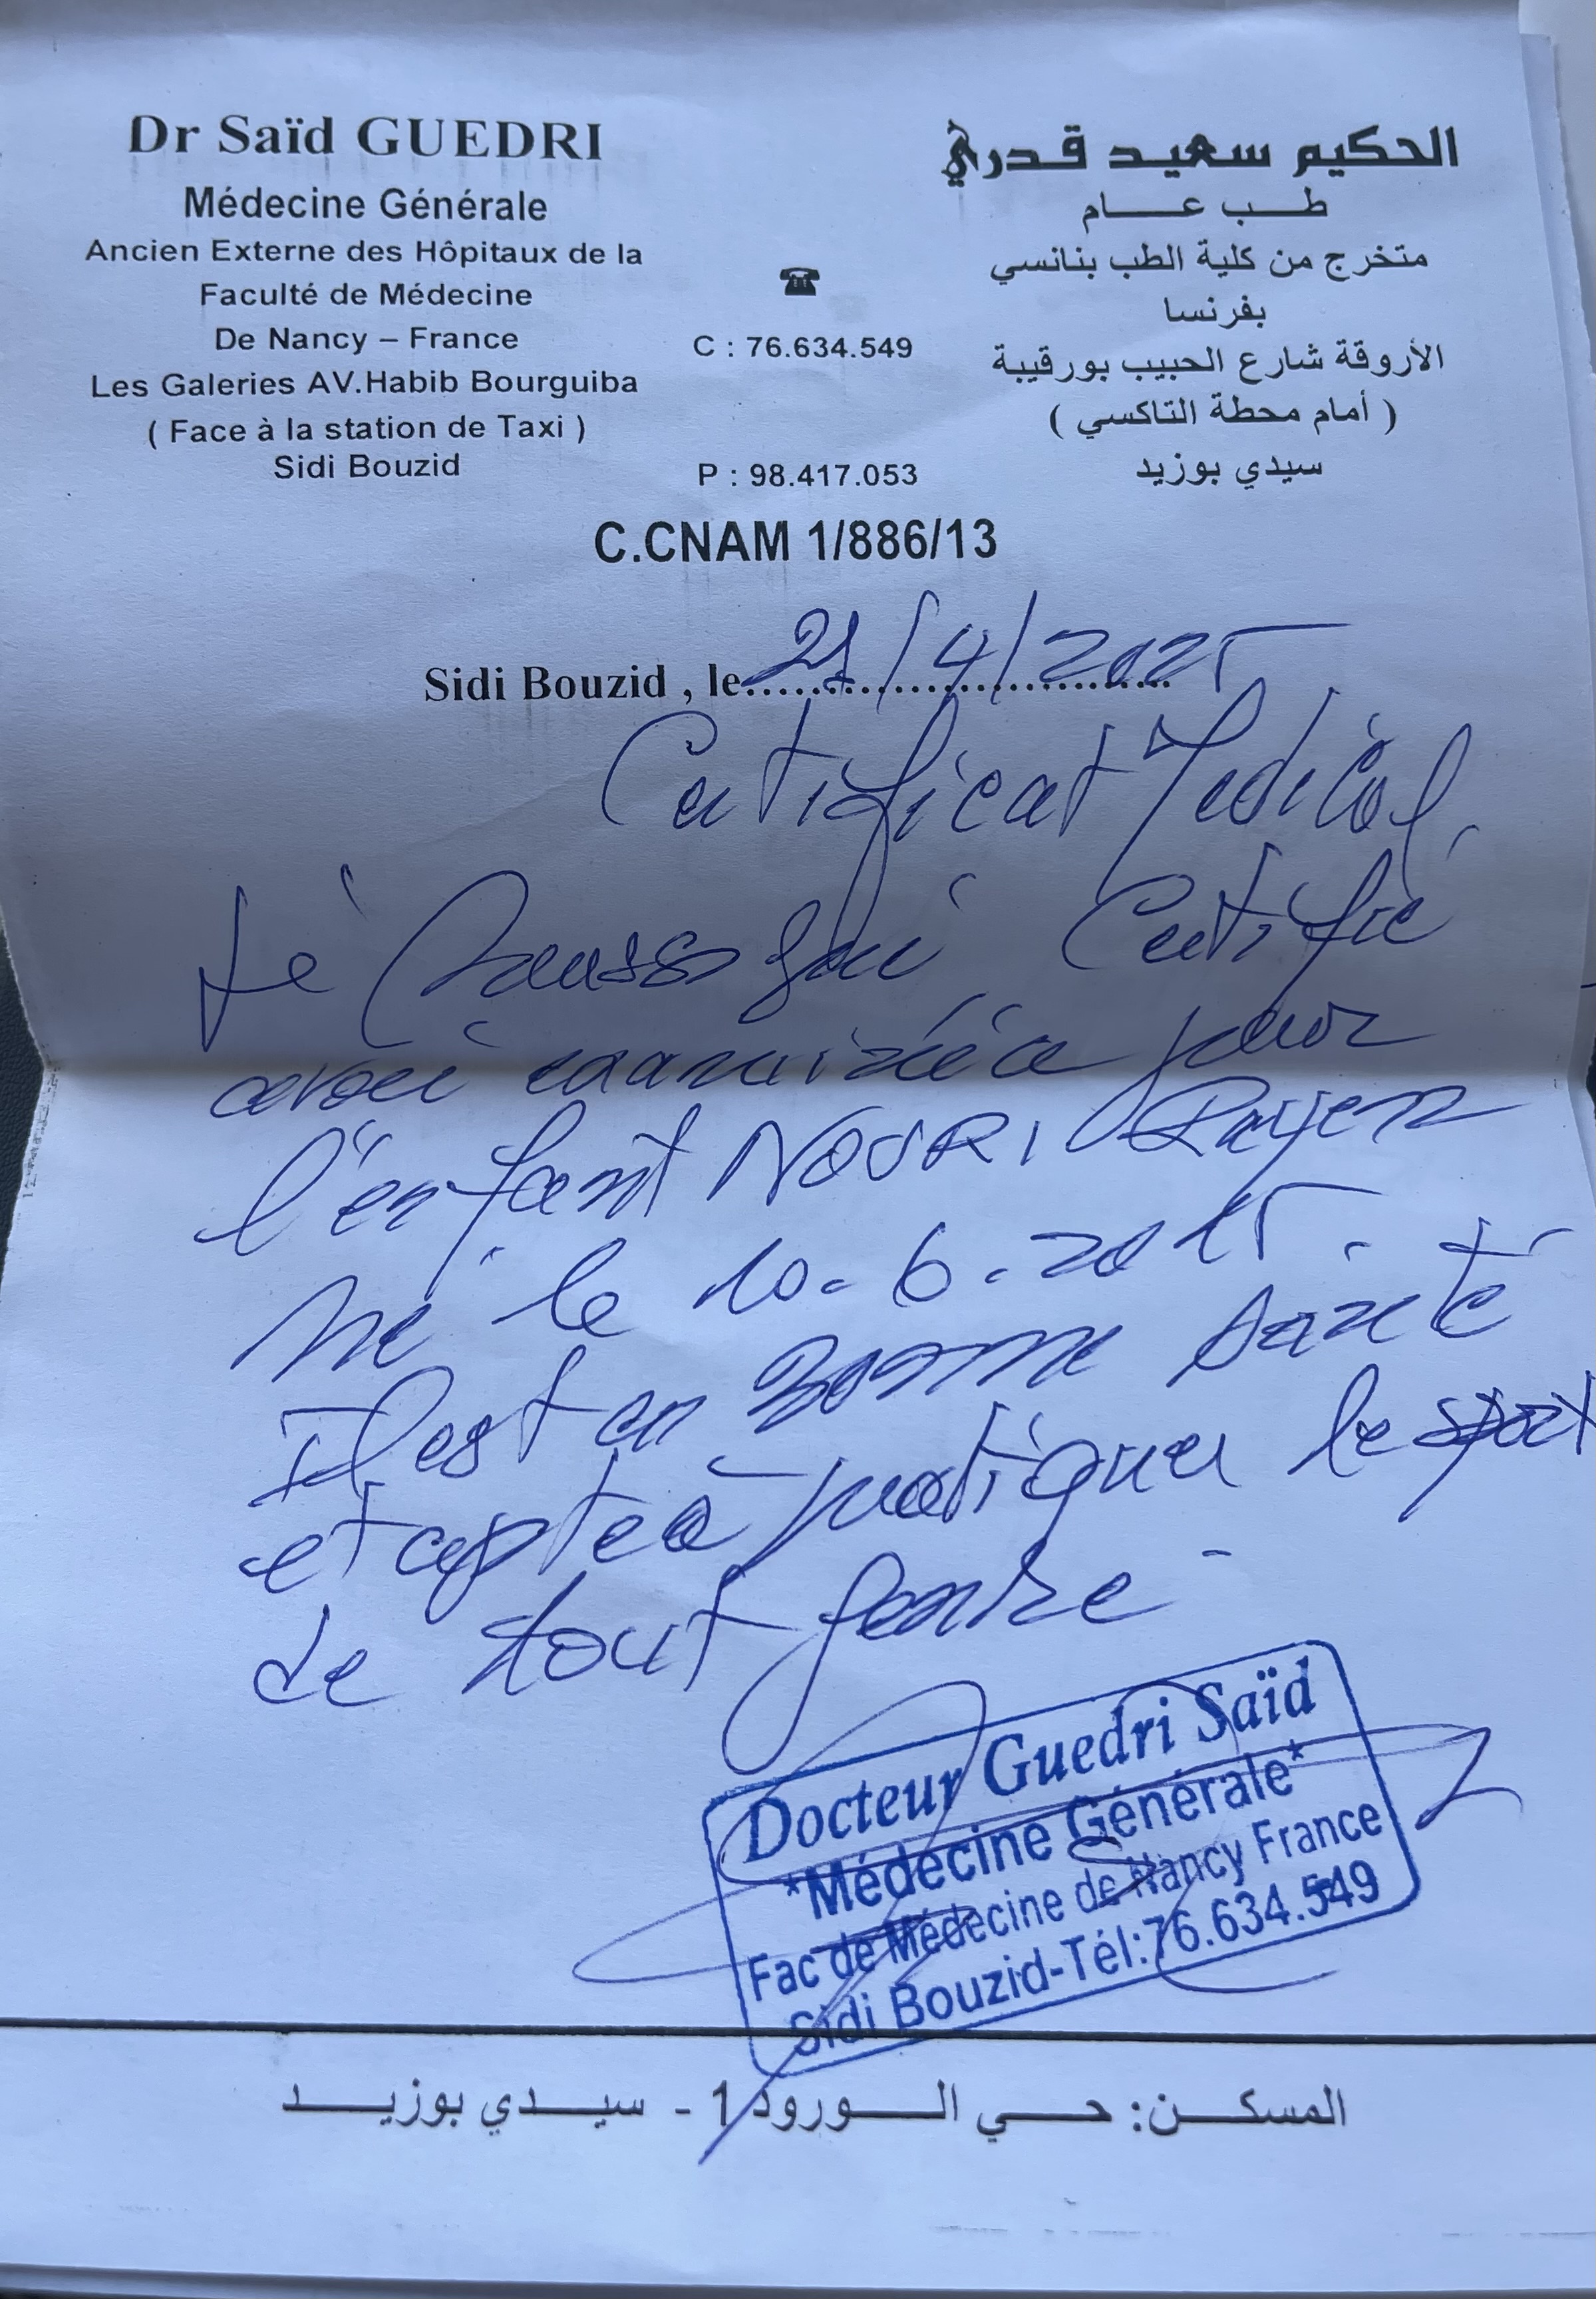 Dr Saïd GUEDRI
Médecine Générale
Ancien Externe des Hôpitaux de la
Faculté de Médecine
De Nancy – France
Les Galeries AV.Habib Bourguiba
( Face à la station de Taxi )
Sidi Bouzid
☎
C : 76.634.549
P : 98.417.053
الحكيم سعيد قدري
طب عام
متخرج من كلية الطب بنانسي
بفرنسا
الأروقة شارع الحبيب بورقيبة
( أمام محطة التاكسي )
سيدي بوزيد
C.CNAM 1/886/13
Sidi Bouzid , le 21/4/2025
Certificat Medical
Je Soussigné Certifie
avoir examiné ce jour
l'enfant NOURI Rayen
né le 10-6-2015.
Il est en Bonne santé
et apte à pratiquer le sport
de tout genre
Docteur Guedri Saïd
*Médecine Générale*
Fac de Médecine de Nancy France
Sidi Bouzid-Tél:76.634.549
المسكن: حي الورود 1 - سيدي بوزيد